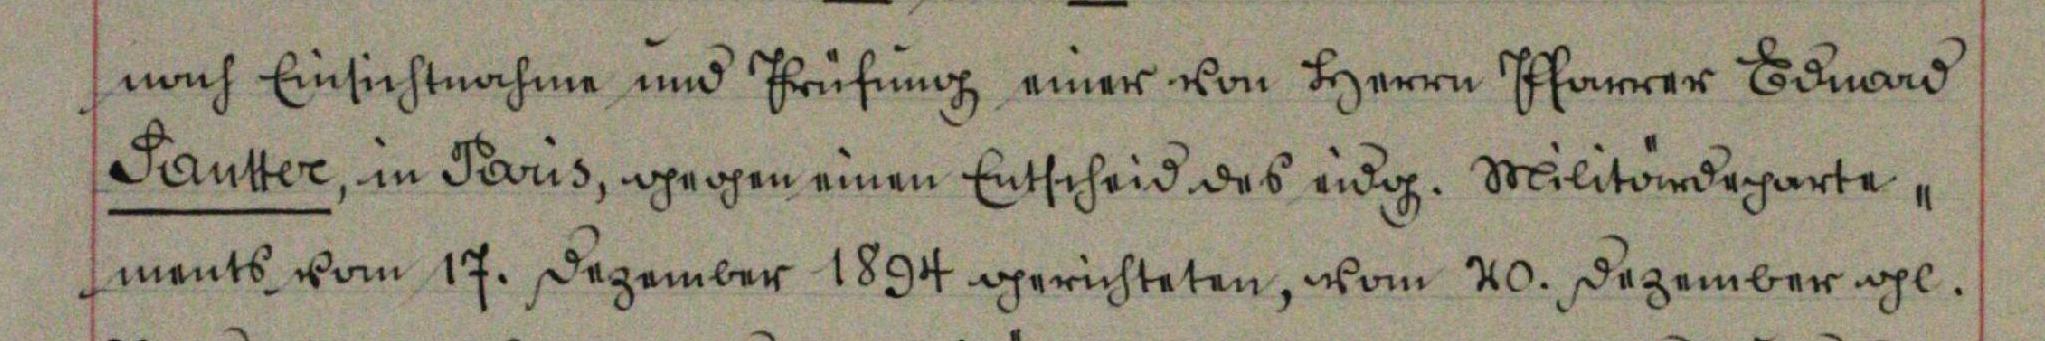 nach Einsichtnahme und Prüfung einer von Herrn Pfarrer Eduard
Sautter, in Paris, gegen einen Entscheid des eidg. Militärdeparte„
ments vom 17. Dezember 1894 gerichteten, vom 20. Dezember gl.